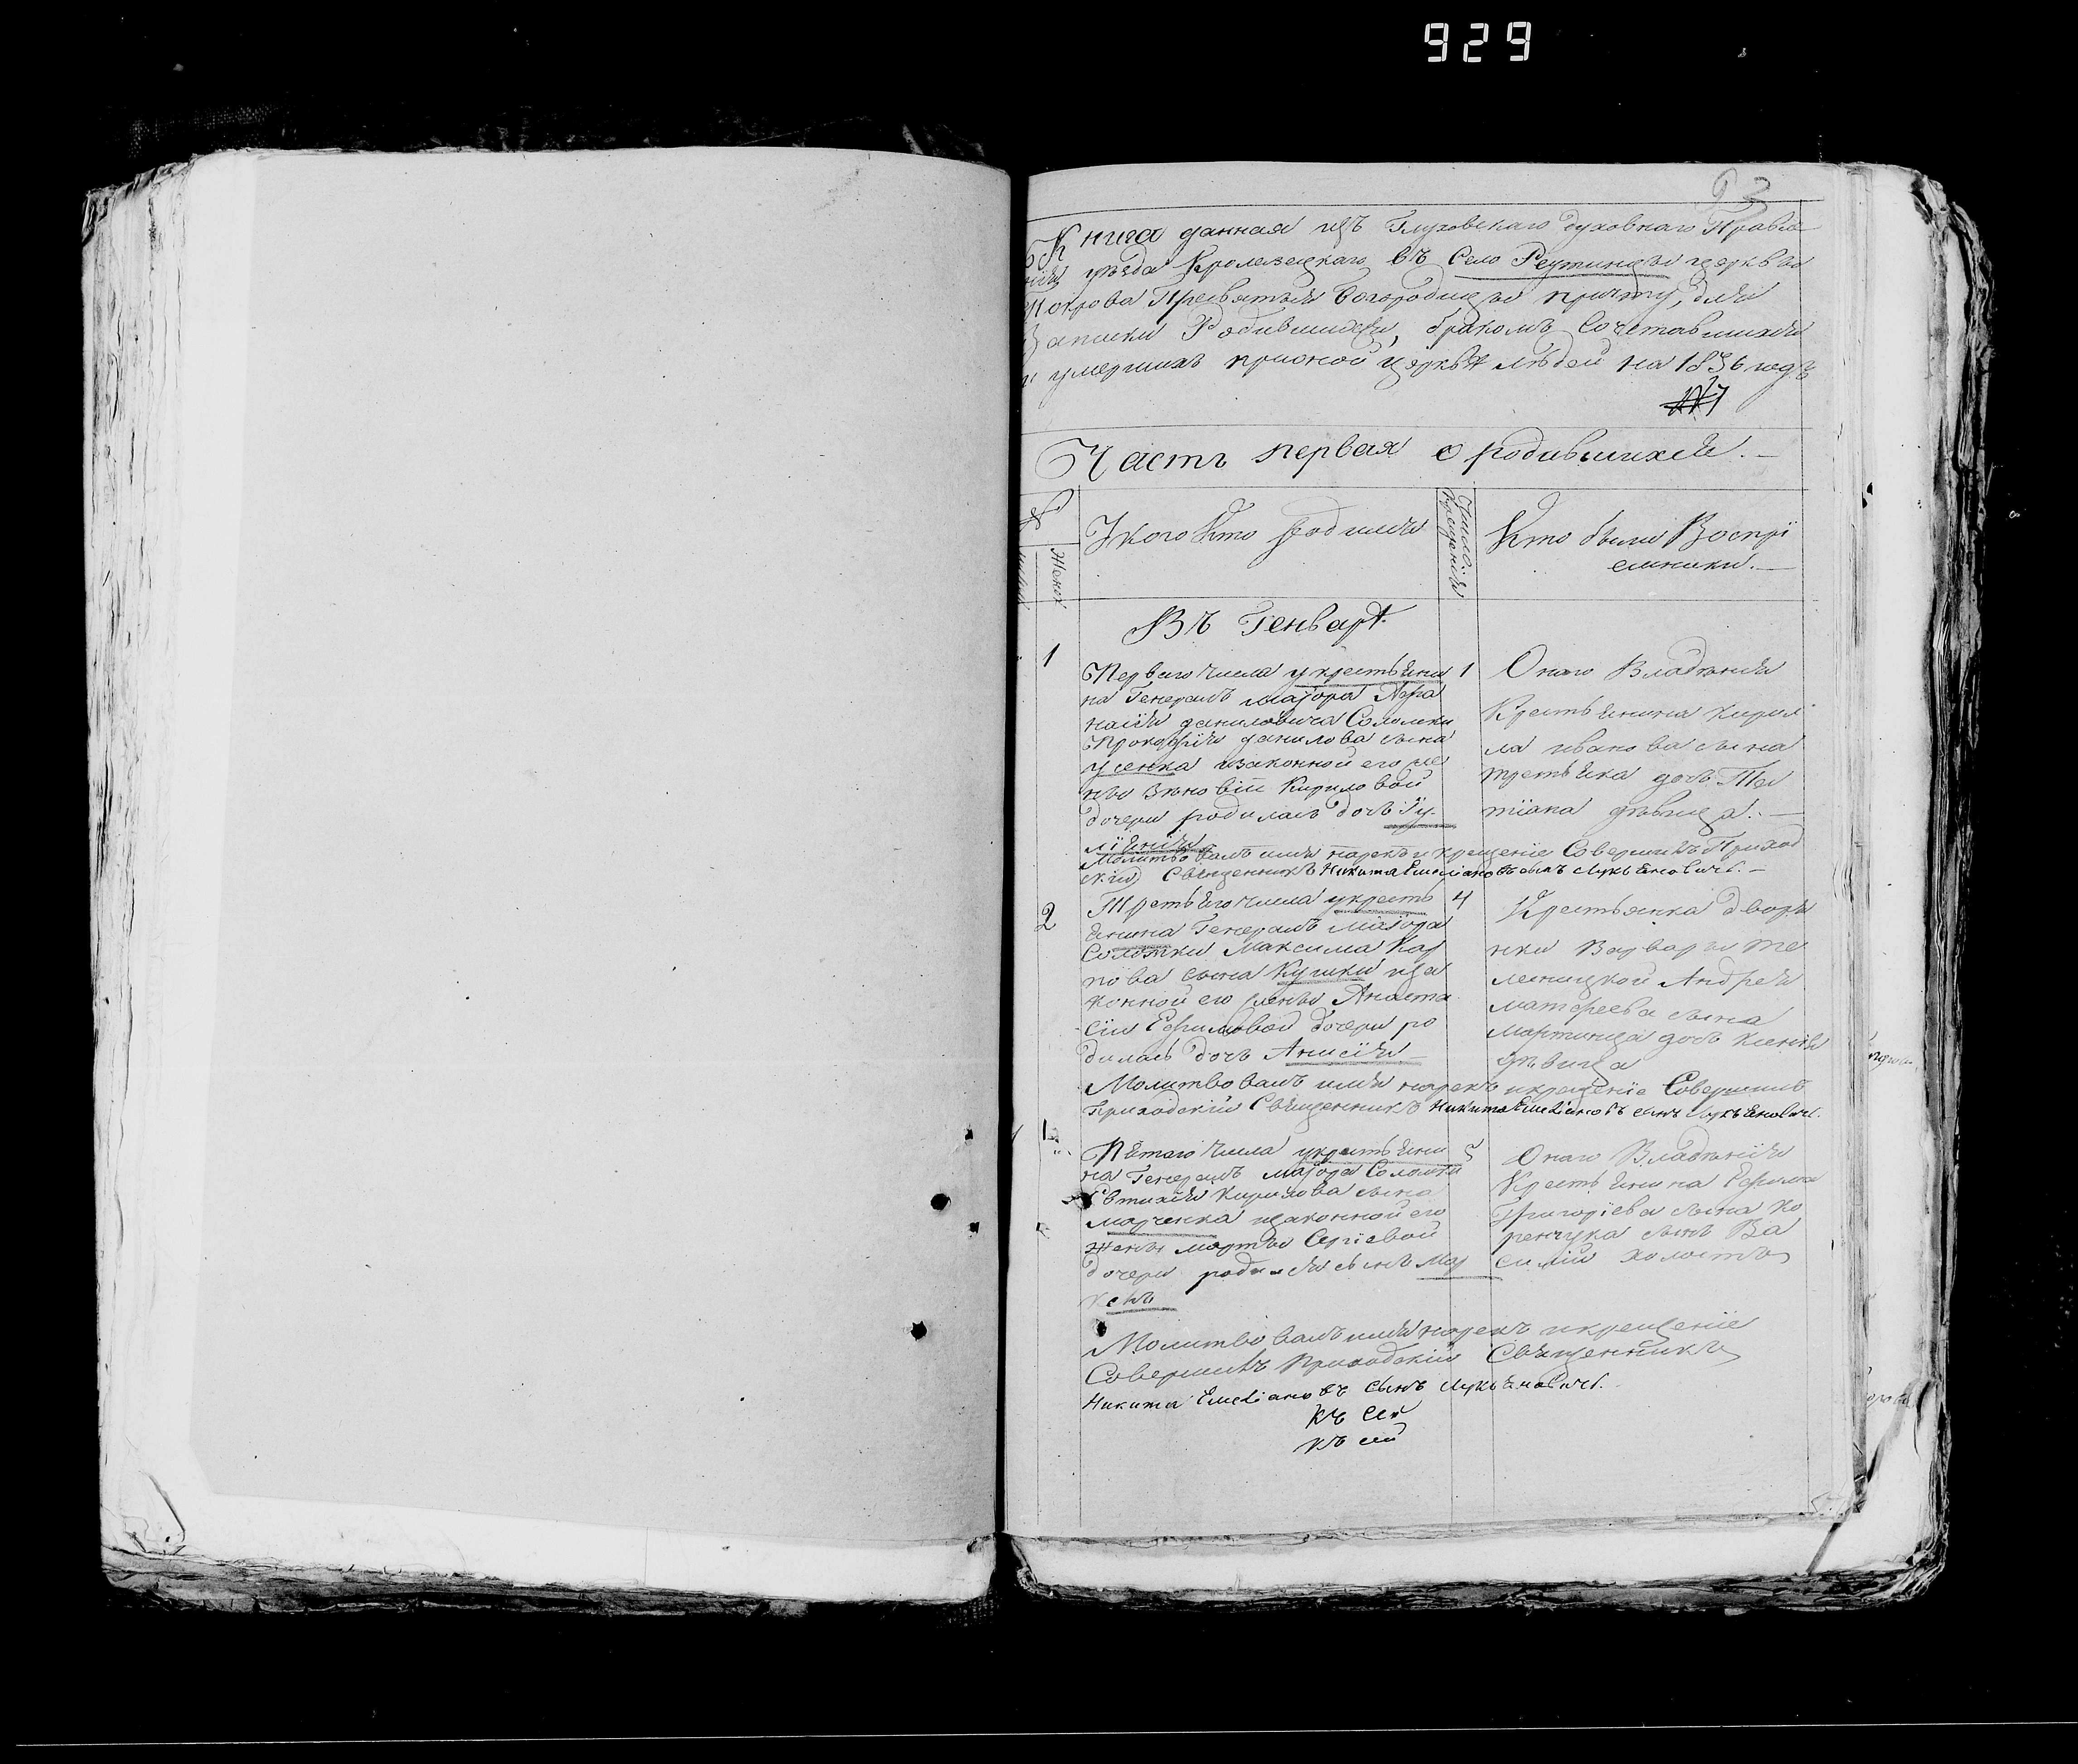 929
93
Книга данная изъ Глуховскаго духовнаго Правле
нія уезда Кролевецкаго въ Село Реутинцы церквы
Покрова Пресвятыя Богородицы причту, для
Записки Родившихся, бракомъ Сочетавшихся
и умершихъ прионой церкве людей на 1836 годъ
Часть первая о родившихся. —
Женск
Укого Кто родился
Число Крещенія
Кто были Воспрі
емники. —
Въ Генваре
1
Перваго числа укрестьяни
на Генералъ маіора Афа
насія даниловича Соломки
Прокофія данилова сына
Усенка изаконной его же
ны Зѣновіи Кириловой
дочери родилась дочь Іу
ліянія
1
Онаго Владѣнія
Крестьянина Кирил
ла иванова сына
третьяка дочь Тат
тіана дѣвица. —
Молитвовалъ имя нарекъ икрещеніе Совершилъ Приход
скій Священникъ Никита Емеліановъ сынъ Лукьяновичъ. —
2
Третьяго числа укресть
янина Генералъ маіора
Соломки Максима Кар
пова сына Кушки иза
конной его жены Анаста
сіи Ефимовой дочери ро
дилась дочь Анисія
4
Крестьянка дворя
нки Варвары
Андрея
матфеева сына
мартинца дочь
дѣвица
Молитвовалъ имя нарекъ икрещеніе Совершилъ
Приходскій Священникъ Никита Емеліановъ сынъ Лукьяновичъ.
1
Пятаго числа укрестьяни
на Генералъ маіора Соломки
Евтихія Кирилова сына
марченка изаконной его
жены марты Сергіевой
дочери родился сынъ Мар
кенъ
5
Онаго Владѣнія
Крестьянина Ефима
Григоріева сына Ко
ренчука сынъ Ва
силій холостъ
Молитвовалъ имя нарекъ икрещеніе
Совершилъ Приходскій Священникъ
Никита Емеліановъ сынъ Лукьяновичъ.
Къ сей
къ сей